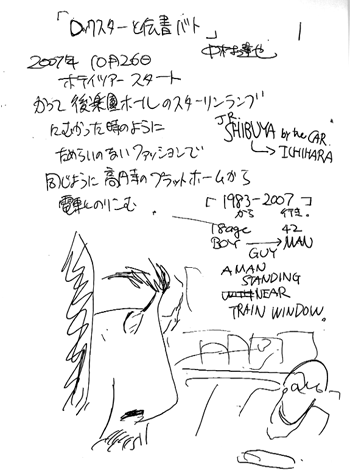 「ロックスターと伝書バト」
1
中村達也
2007年 10月26日
ホテイツアー スタート
かつて後楽園ホールのスターリンランブ
にむかった時のように
ためらいのないファッションで
同じように高円寺のプラットホームから
電車にのりこむ
JR.
SHIBUYA by the CAR.
→ ICHIHARA
「1983-2007」
から 行き.
18age 42
BOY → MAN
GUY
A MAN
STANDING
NEAR
TRAIN WINDOW.